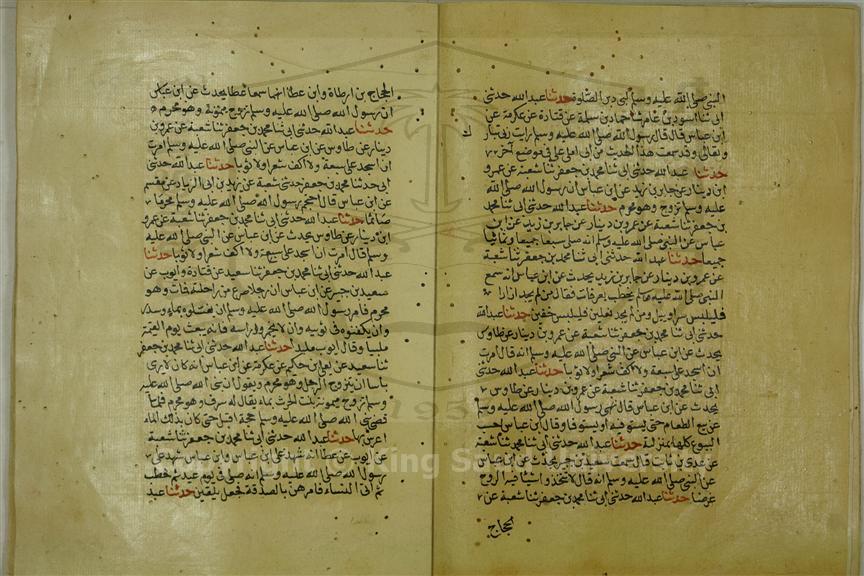 النبي صلى الله عليه وسلم لبى دبر الصلوة حدثنا عبد الله حدثني
ابي ثنا اسود بن عامر ثنا حماد بن سلمة عن قتادة عن عكرمة عن
ابن عباس قال قال رسول الله صلى الله عليه وسلم رايت ربي تبارك
وتعالى وقد سمعت هذا الحديث من ابي املى علي في موضع آخر
حدثنا عبد الله حدثني ابي ثنا محمد بن جعفر ثنا شعبة عن عمرو
ابن دينار عن جابر بن زيد عن ابن عباس ان رسول الله صلى الله
عليه وسلم تزوج وهو محرم حدثنا عبد الله حدثني ابي ثنا محمد
بن جعفر ثنا شعبة عن عمرو بن دينار عن جابر بن زيد عن ابن
عباس عن النبي صلى الله عليه وسلم انه صلى سبعا جميعا وثمانيا
جميعا حدثنا عبد الله حدثني ابي ثنا محمد بن جعفر ثنا شعبة
عن عمرو بن دينار عن جابر بن زيد يحدث عن ابن عباس انه سمع
النبي صلى الله عليه وسلم يخطب بعرفات فقال من لم يجد ازارا
فليلبس سراويل ومن لم يجد نعلين فليلبس خفين حدثنا عبد الله
حدثني ابي ثنا محمد بن جعفر ثنا شعبة عن عمرو بن دينار عن طاوس
يحدث عن ابن عباس عن النبي صلى الله عليه وسلم انه قال امرت
ان اسجد على سبعة ولا اكف شعرا ولا ثوبا حدثنا عبد الله حدثني
ابي ثنا محمد بن جعفر ثنا شعبة عن عمرو بن دينار عن طاوس
يحدث عن ابن عباس قال نهى رسول الله صلى الله عليه وسلم
عن بيع الطعام حتى يستوفيه او يستوفا وقال ابن عباس احسب
البيوع كلها بمنزلته حدثنا عبد الله حدثني ابي ثنا محمد ثنا شعبة
عن عدي بن ثابت قال سمعت سعيد بن جبير يحدث عن ابن عباس
عن النبي صلى الله عليه وسلم انه قال لا تتخذوا شيئا فيه الروح
غرضا حدثنا عبد الله حدثني ابي ثنا محمد بن جعفر ثنا شعبة عن
الحجاج
الحجاج بن ارطاة وابن عطا انهما سمعا عطا يحدث عن ابن عباس
ان رسول الله صلى الله عليه وسلم تزوج ميمونة وهو محرم
حدثنا عبد الله حدثني ابي ثنا محمد بن جعفر ثنا شعبة عن عمرو بن
دينار عن طاوس عن ابن عباس عن النبي صلى الله عليه وسلم امرت
ان اسجد على سبعة ولا اكف شعرا ولا ثوبا حدثنا عبد الله حدثني
ابي حدثنا محمد بن جعفر حدثني شعبة عن يزيد بن ابي الزياد عن مقسم
عن ابن عباس قال احتجم رسول الله صلى الله عليه وسلم محرما
صائما حدثنا عبد الله حدثني ابي ثنا محمد بن جعفر ثنا شعبة عن عمرو
ابن دينار عن طاوس يحدث عن ابن عباس عن النبي صلى الله عليه
وسلم قال امرت ان اسجد على سبعة ولا اكف شعرا ولا ثوبا حدثنا
عبد الله حدثني ابي ثنا محمد بن جعفر ثنا سعيد عن قتادة وايوب عن
سعيد بن جبير عن ابن عباس ان رجلا صرع من راحلته فمات وهو
محرم فامر رسول الله صلى الله عليه وسلم ان يغسلوه بماء وسدر
وان يكفنوه في ثوبيه وان لا يخمروا راسه فانه يبعث يوم القيمة
ملبيا وقال ايوب ملبدا حدثنا عبد الله حدثني ابي ثنا محمد بن جعفر
ثنا سعيد عن يعلى ابن حكيم عن عكرمة عن ابن عباس انه كان لا يرى
باسا ان يتزوج الرجل وهو محرم ويقول ان نبي الله صلى الله عليه
وسلم تزوج ميمونة بنت الحرث بماء يقال له سرف وهو محرم فلما
قضى نبي الله صلى الله عليه وسلم حجة اقبل حتى كان بذلك الماء
اعرس بها حدثنا عبد الله حدثني ابي ثنا محمد بن جعفر ثنا شعبة
عن ايوب عن عطا انه شهد على ابن عباس وابن عباس شهد على
رسول الله صلى الله عليه وسلم انه صلى في يوم عيد ثم خطب
ثم اتى النساء فامرهن بالصدقة فجعلن يلقين حدثنا عبد